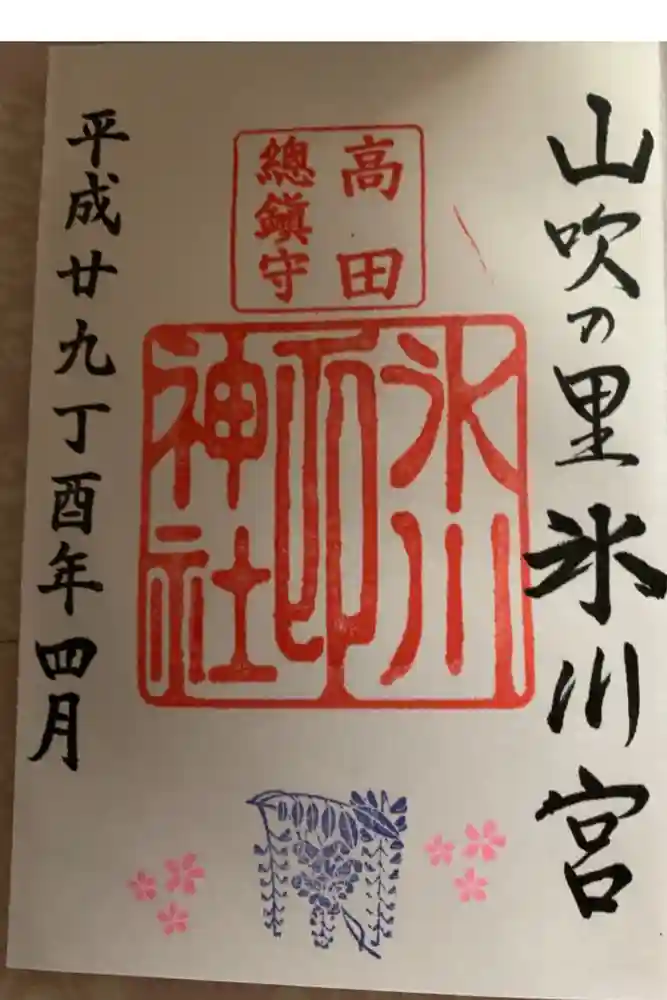 山吹の里氷川宮
高田
總鎭守
氷川
神社
平成廿九丁酉年四月